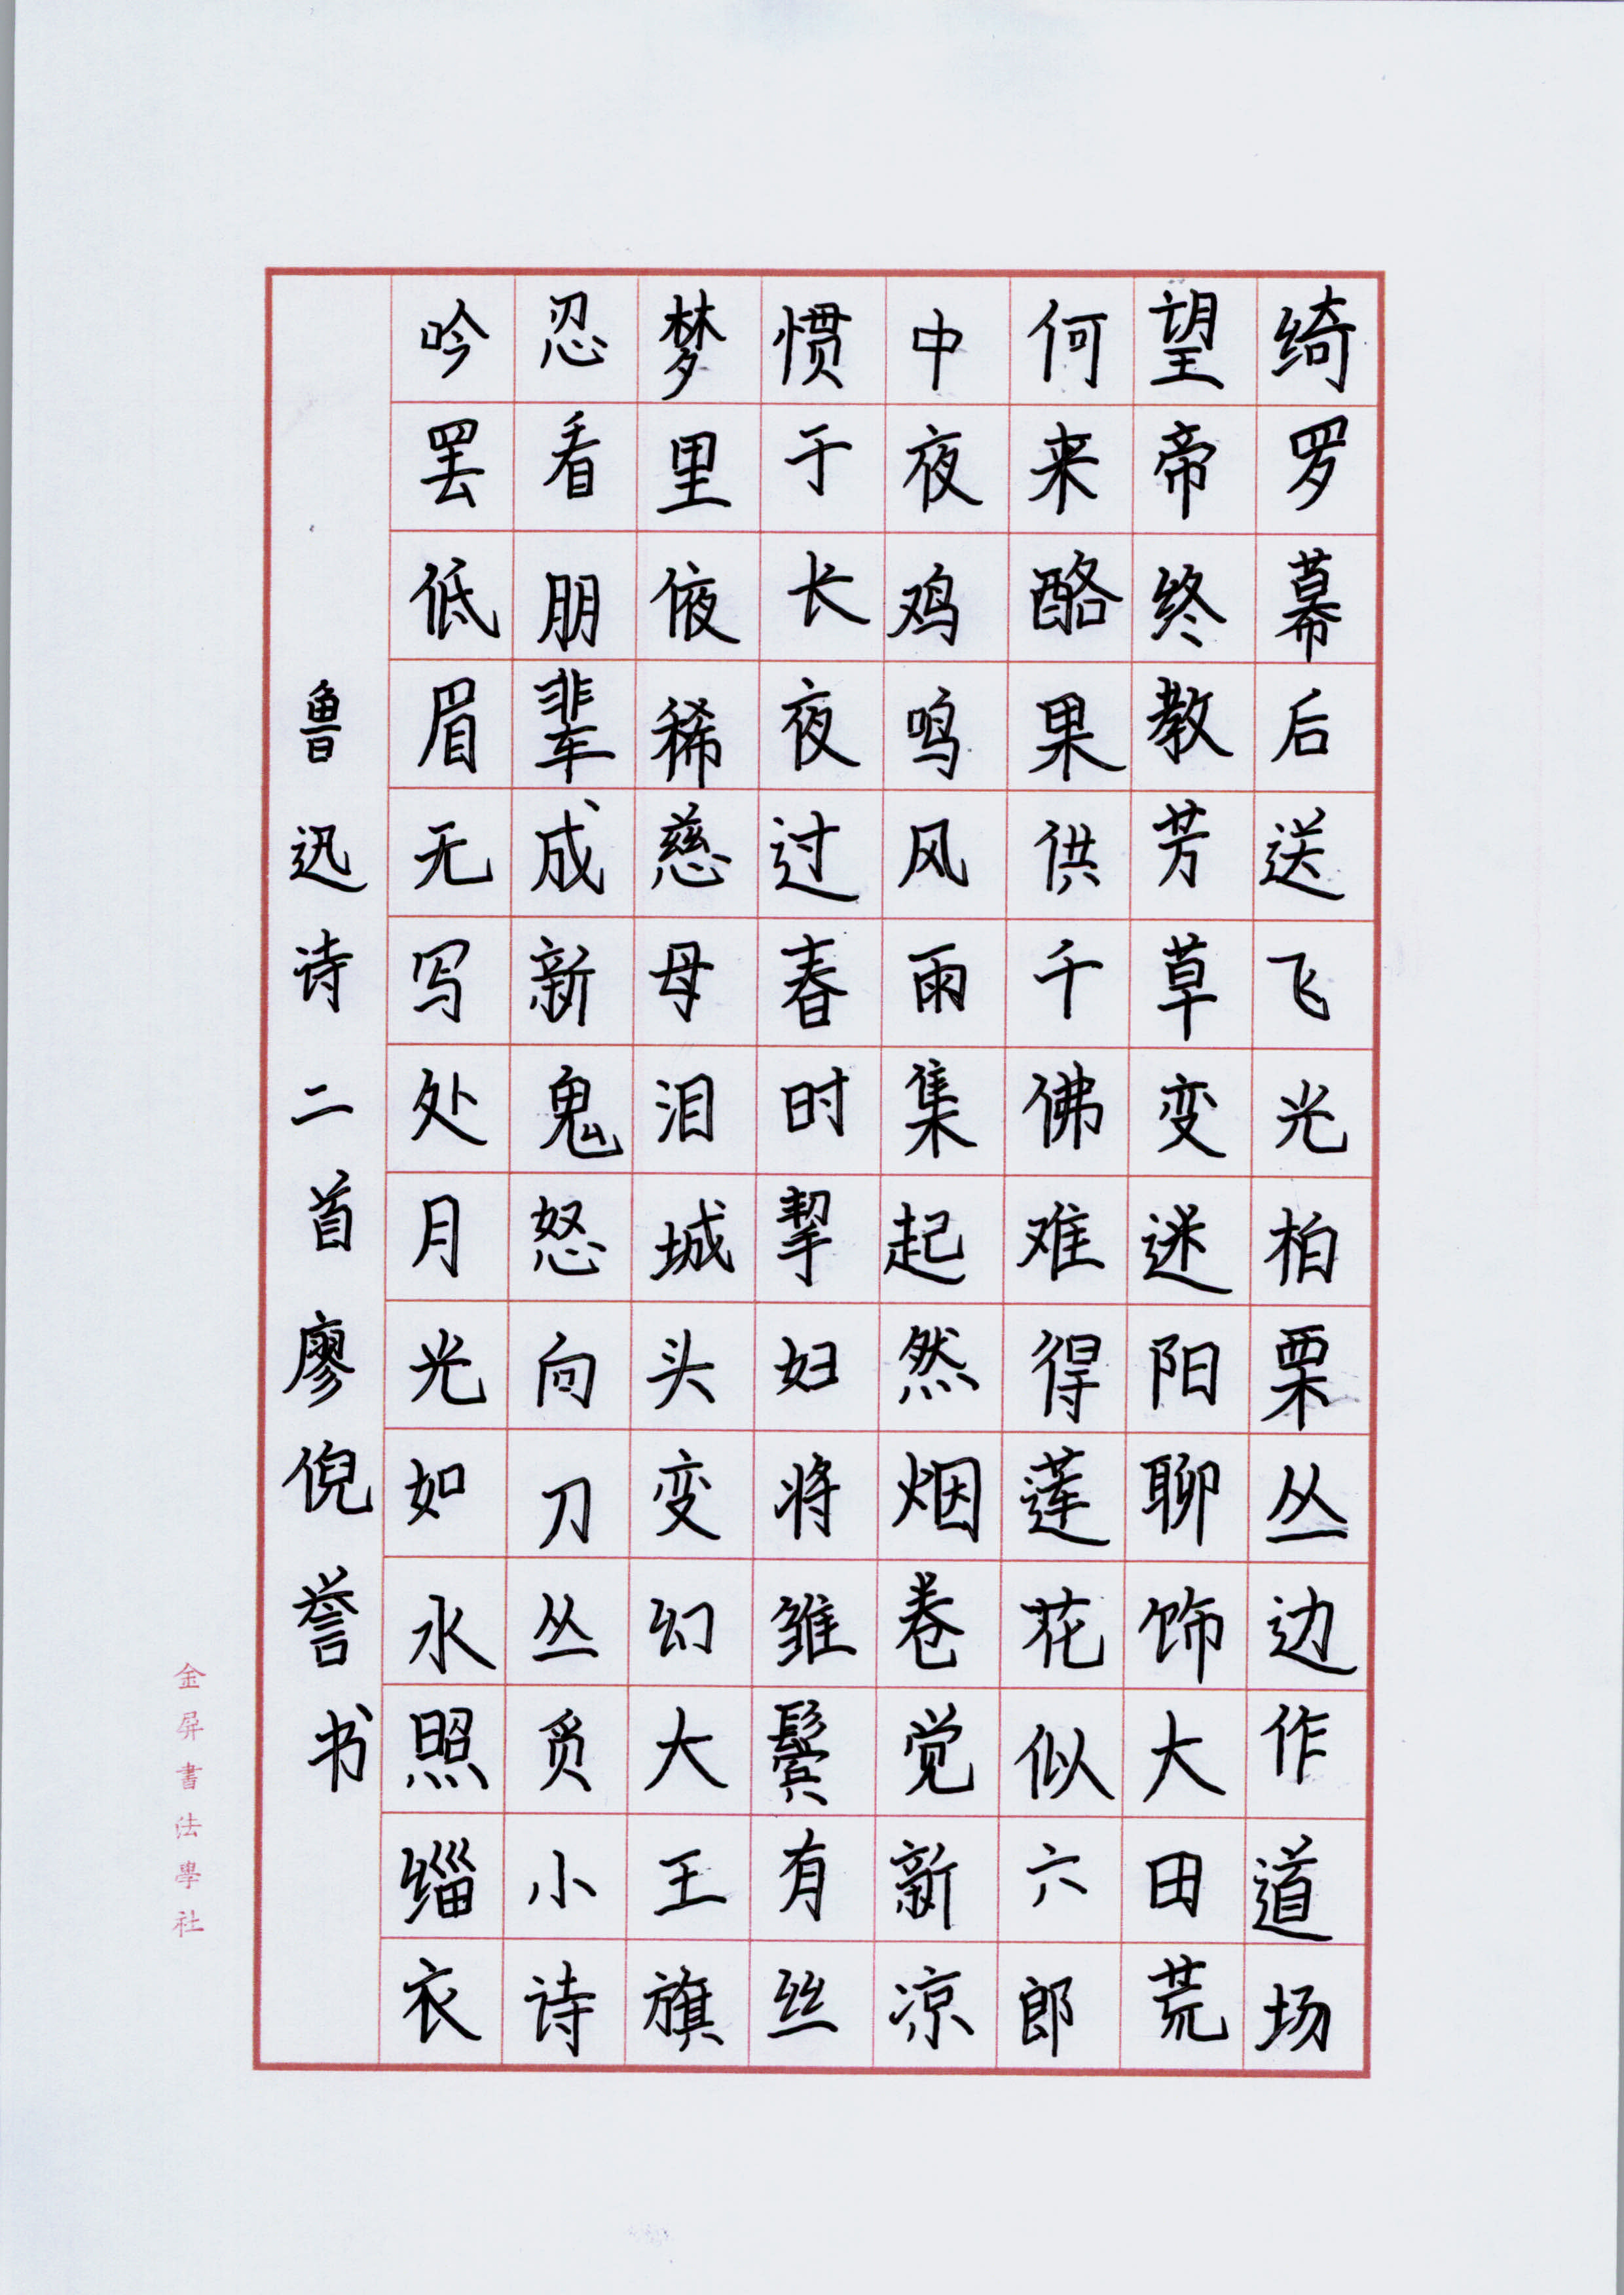 绮罗幕后送飞光柏栗丛边作道场
望帝终教芳草变迷阳聊饰大田荒
何来酪果供千佛难得莲花似六郎
中夜鸡鸣风雨集起然烟卷觉新凉
惯于长夜过春时挈妇将雏鬓有丝
梦里依稀慈母泪城头变幻大王旗
忍看朋辈成新鬼怒向刀丛觅小诗
吟罢低眉无写处月光如水照缁衣
鲁迅诗二首廖倪誉书
金屏書法學社